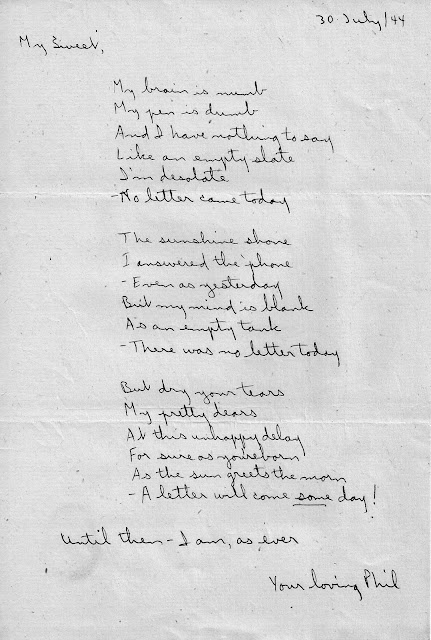 30 July/44
My Sweet,
My brain is numb
My pen is dumb
And I have nothing to say
Like an empty slate
I'm desolate
-No letter came today
The sunshine shone
I answered the 'phone
-Even as yesterday
But my mind is blank
As an empty tank
-There was no letter today
But dry your tears
My pretty dears
At this unhappy delay
For sure as you're born
As the sun greets the morn
-A letter will come some day!
Until then - I am, as ever
Your loving Phil